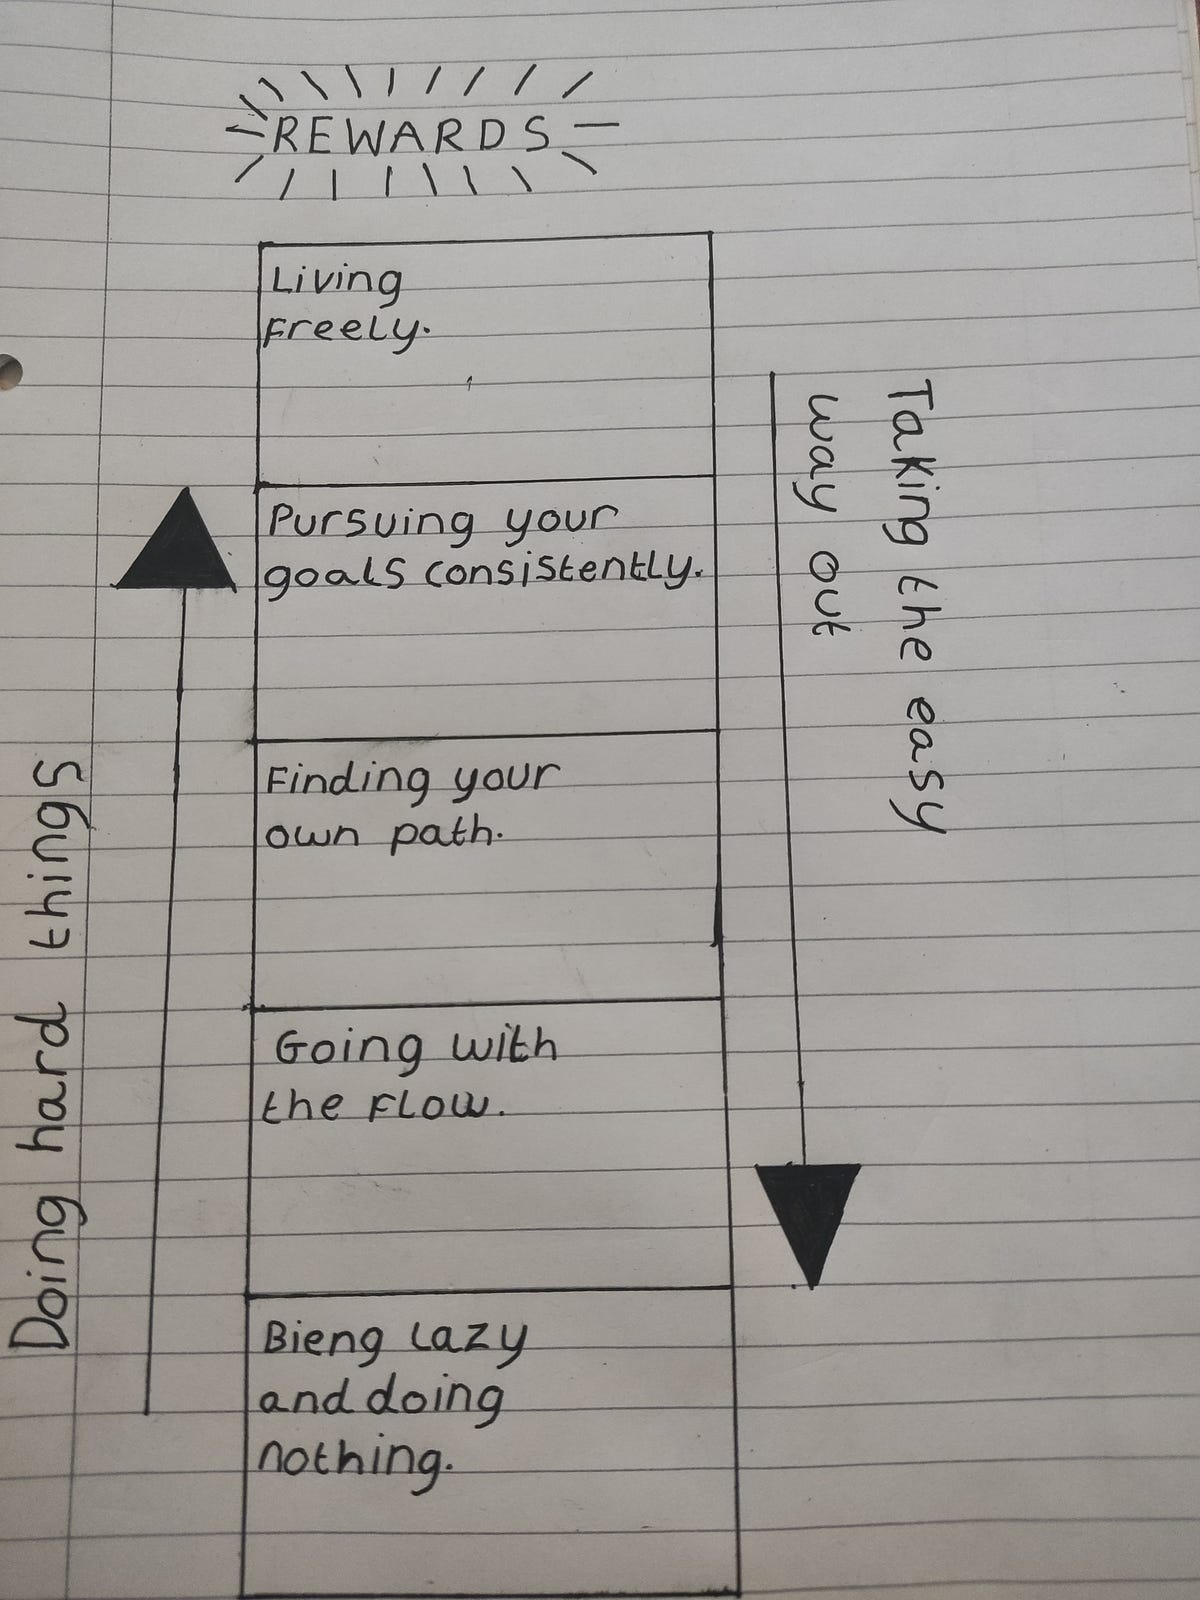 REWARDS
Living
Freely.
Pursuing your
goals consistently.
Finding your
own path.
Going with
the Flow.
Bieng lazy
and doing
nothing.
Doing hard things
Taking the easy
way out